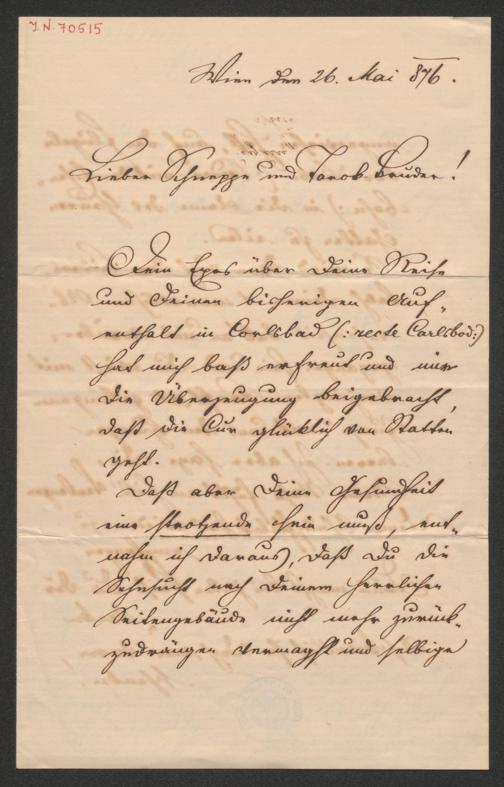 J.N. 70515
Wien den 26. Mai 876.
Lieber Schnuppe und Tarok Bruder!
Dein Epos über Deine Reise
und Deinen bisherigen Auf-
enthalt in Corlsbad (: recte Carlsbad :)
hat mich baß erfreut und mir
die Überzeugung beigebracht,
daß die Cur glücklich von Statten
geht.
Daß aber Deine Gesundheit
eine strotzende sein muß, ent-
nahm ich daraus, daß Du die
Sehnsucht nach Deinem herrlichen
Seitengebäude nicht mehr zurück-
zudrängen vermagst und selbige